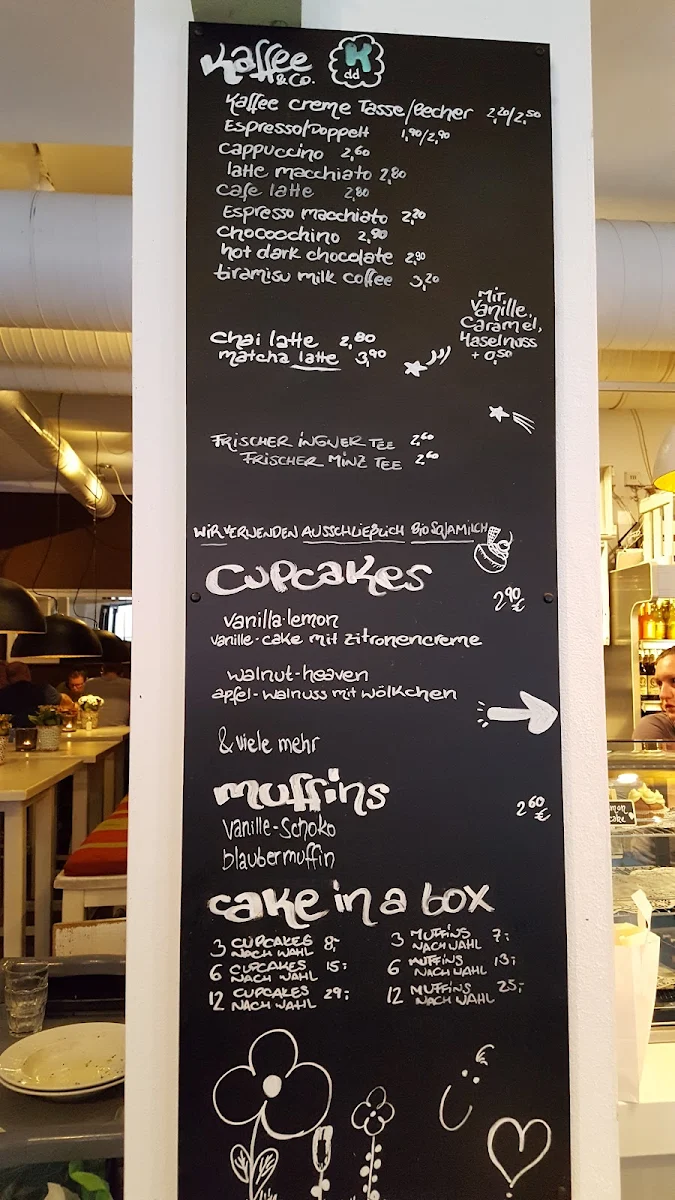 Kaffee
& Co.
K
dd
Kaffee creme Tasse/Becher 2,20/2,50
Espresso/Doppelt 1,90/2,90
cappuccino 2,60
latte macchiato 2,80
cafe latte 2,80
Espresso macchiato 2,20
chococchino 2,90
hot dark chocolate 2,90
tiramisu milk coffee 3,20
mit
Vanille,
Caramel,
Haselnuss
+ 0,50
chai latte 2,80
matcha latte 3,90
FRISCHER INGWER TEE 2,60
FRISCHER MINZ TEE 2,60
WIR VERWENDEN AUSSCHLIEßLICH BIO SOJAMILCH
Cupcakes
2,90 €
vanilla-lemon
vanille-cake mit zitronencreme
walnut-heaven
apfel-walnuss mit wölkchen
& viele mehr
muffins
2,60 €
Vanille-Schoko
blaubermuffin
cake in a box
3 CUPCAKES NACH WAHL 8,-
6 CUPCAKES NACH WAHL 15,-
12 CUPCAKES NACH WAHL 29,-
3 MUFFINS NACH WAHL 7,-
6 MUFFINS NACH WAHL 13,-
12 MUFFINS NACH WAHL 25,-